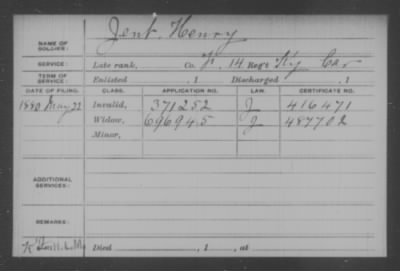 NAME OF SOLDIER: Jent, Henry
SERVICE: Late rank, Co. F. 14 Reg't Ky Cav
TERM OF SERVICE: Enlisted , 1 Discharged , 1
DATE OF FILING. CLASS. APPLICATION NO. LAW. CERTIFICATE NO.
1880 May 22 Invalid, 371252 J 416471
Widow, 696945 J 487702
Minor,
ADDITIONAL SERVICES:
REMARKS:
Died , 1 , at